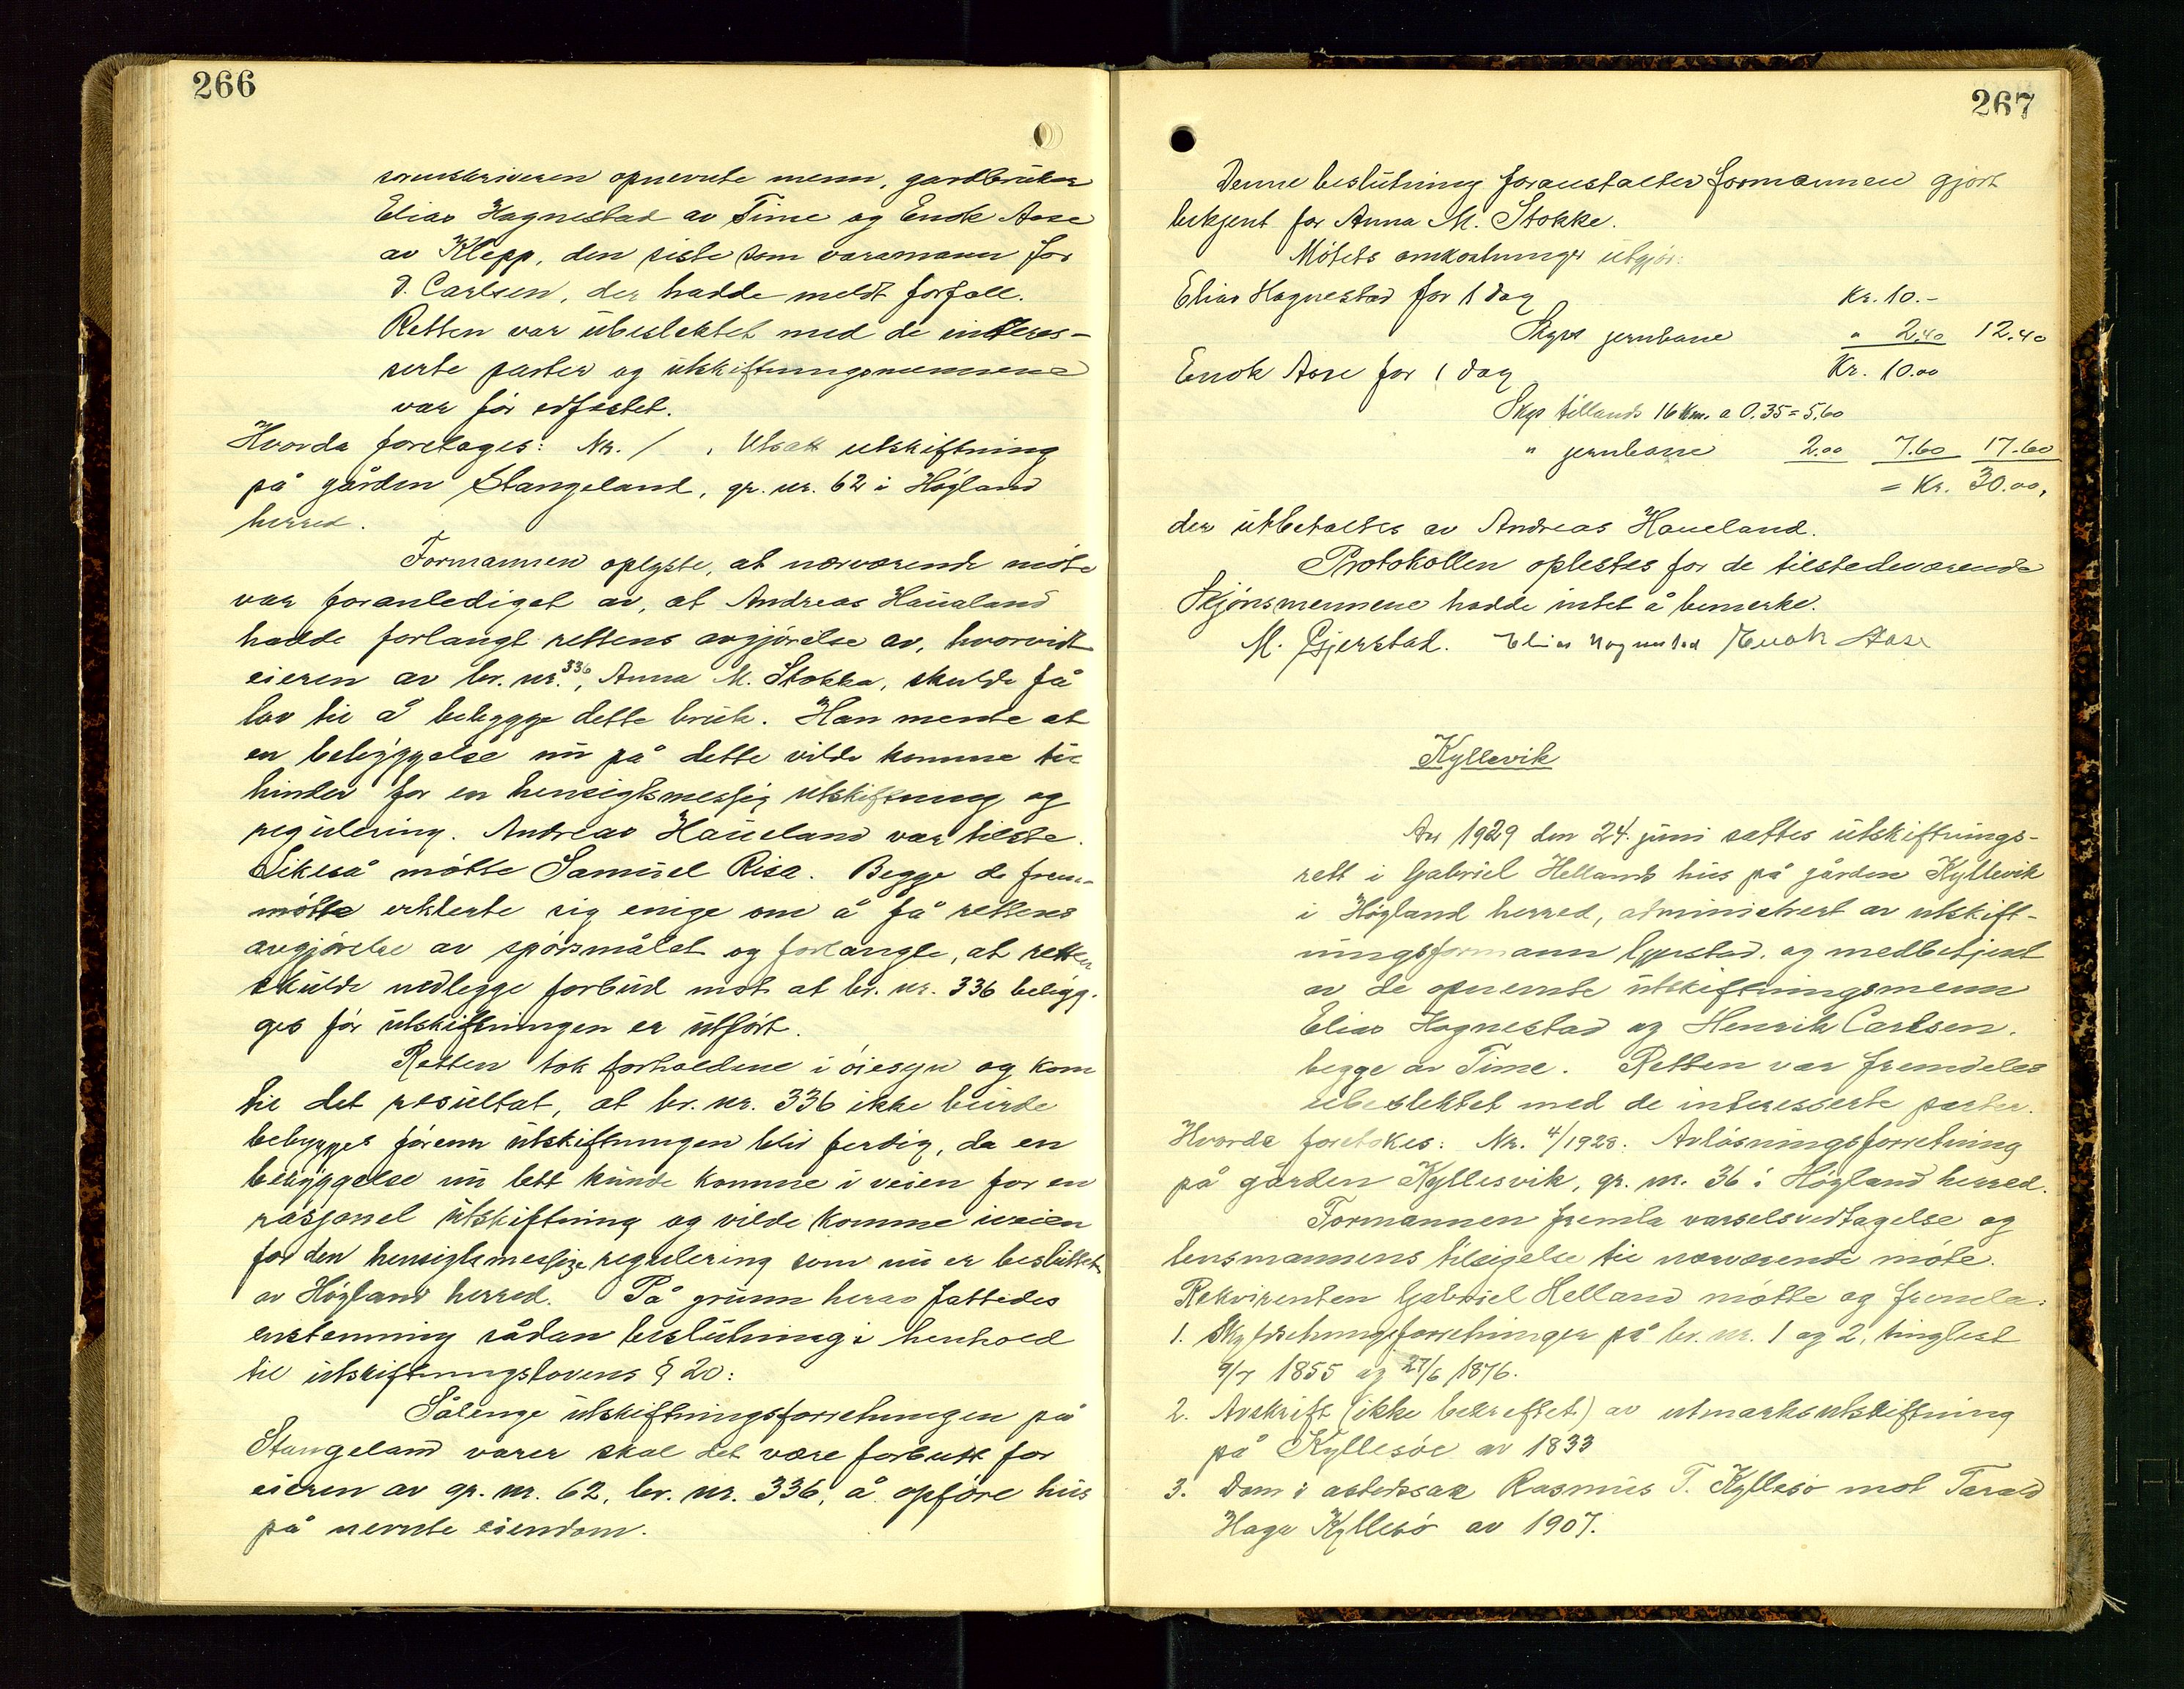 266
sorenskriveren opnevnte menn, gardbruker
Elias Hognestad av Time og Enok Aase
av Klepp, den siste som varamann for
D. Carlsen, der hadde meldt forfall.
Retten var ubeslektet med de interes-
serte parter og utskiftningsmennene
var før edfestet.
Hvorda foretages: Nr. / , Utsatt utskiftning
på gården Stangeland, gr. nr. 62 i Högland
herred.
Formannen oplyste, at nærværende møte
var foranlediget av, at Andreas Haualand
hadde forlangt rettens avgjørelse av, hvorvidt
eieren av br. nr. 336, Anna M. Stokka, skulde få
lov til å bebygge dette bruk. Han mente at
en bebyggelse nu på dette vilde komme til
hinder for en hensigtsmessig utskiftning og
regulering. Andreas Haueland var tilstede.
Likeså møtte Samuel Risa. Begge de frem-
møtte erklerte sig enige om å få rettens
avgjørelse av spørsmålet og forlangte, at retten
skulde nedlegge forbud mot at br. nr. 336 bebyg-
ges før utskiftningen er utført.
Retten tok forholdene i øiesyn og kom
til det resultat, at br. nr. 336 ikke burde
bebygges førenn utskiftningen blir ferdig, da en
bebyggelse nu lett kunde komme i veien for en
rasjonel utskiftning og vilde komme iveien
for den hensigtsmessige regulering som nu er besluttet
av Högland herred. På grunn herav fattedes
enstemmig sådan beslutning i henhold
til utskiftningslovens § 20:
Sålenge utskiftningsforretningen på
Stangeland varer skal det være forbutt for
eieren av gr. nr. 62, br. nr. 336, å opføre hus
på nevnte eiendom.
267
Denne beslutning foranstalter formannen gjort
bekjent for Anna M. Stokke.
Møtets omkostninger utgjør:
Elias Hognestad for 1 dag Kr. 10.-
Skyss jernbane " 2.40 12.40
Enok Aase for 1 dag Kr. 10.00
Skyss tillands 16 km. a 0.35 = 5.60
" jernbane 2.00 7.60 17.60
= Kr. 30.00,
der utbetaltes av Andreas Haueland.
Protokollen oplestes for de tilstedeværende
Skjønsmennene hadde intet å bemerke.
M. Gjerstad. Elias Hognestad Enok Aase
Kyllevik
År 1929 den 24. juni sattes utskiftnings-
rett i Gabriel Hellands hus på gården Kyllevik
i Högland herred, administrert av utskift-
ningsformann Gjerstad, og medbetjent
av de opnevnte utskiftningsmenn
Elias Hognestad og Henrik Carlsen.
begge av Time. Retten var fremdeles
ubeslektet med de interesserte parter.
Hvorda foretokes: Nr. 4/1928. Avløsningsforretning
på gården Kyllesvik, gr. nr. 36 i Högland herred.
Formannen fremla varselsvedtagelse og
lensmannens tilsigelse til nærværende møte.
Rekvirenten Gabriel Helland møtte og fremla:
1. Skyldsetningsforretninger på br. nr. 1 og 2, tinglest
9/7 1855 og 27/6 1876.
2. Avskrift (ikke bekreftet) av utmarksutskiftning
på Kyllesöe av 1833
3. Dom i åstedssak Rasmus T. Kyllesø mot Tarald
Haga Kyllesø av 1907.